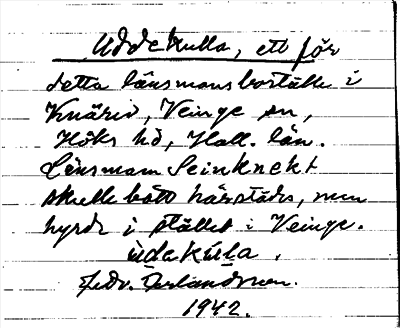 Uddekulla, ett för
detta länsmansboställe i
Knäred, Veinge sn,
Höks hd, Hall. län.
Länsman Leinknekt
skulle bott härstädes, men
hyrde i stället i Veinge.
ùdakúl̄a.
Fredr. Örlandsson.
1942.